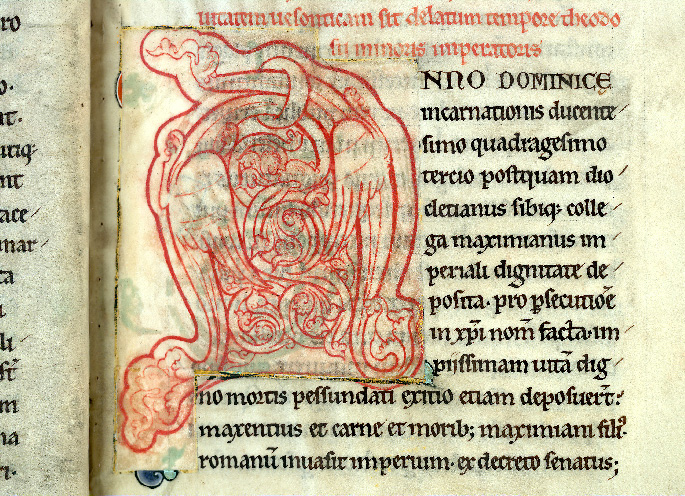 uitatem uesonticam sit delatum tempore theodo
sii minoris imperatoris
NNO DOMINICE
incarnationis ducente
simo quadragesimo
tercio postquam dio
cletianus sibiq; colle
ga maximianus im
periali dignitate de
posita. pro ꝑsecutiōe
in xp̄i nom̄ facta. im
piissimam uitā dig
no mortis pessundati exitio etiam deposuer̄t:
maxentius et carne et morib; maximiani filiꝰ.
romanū inuasit imperium. ex decreto senatus;